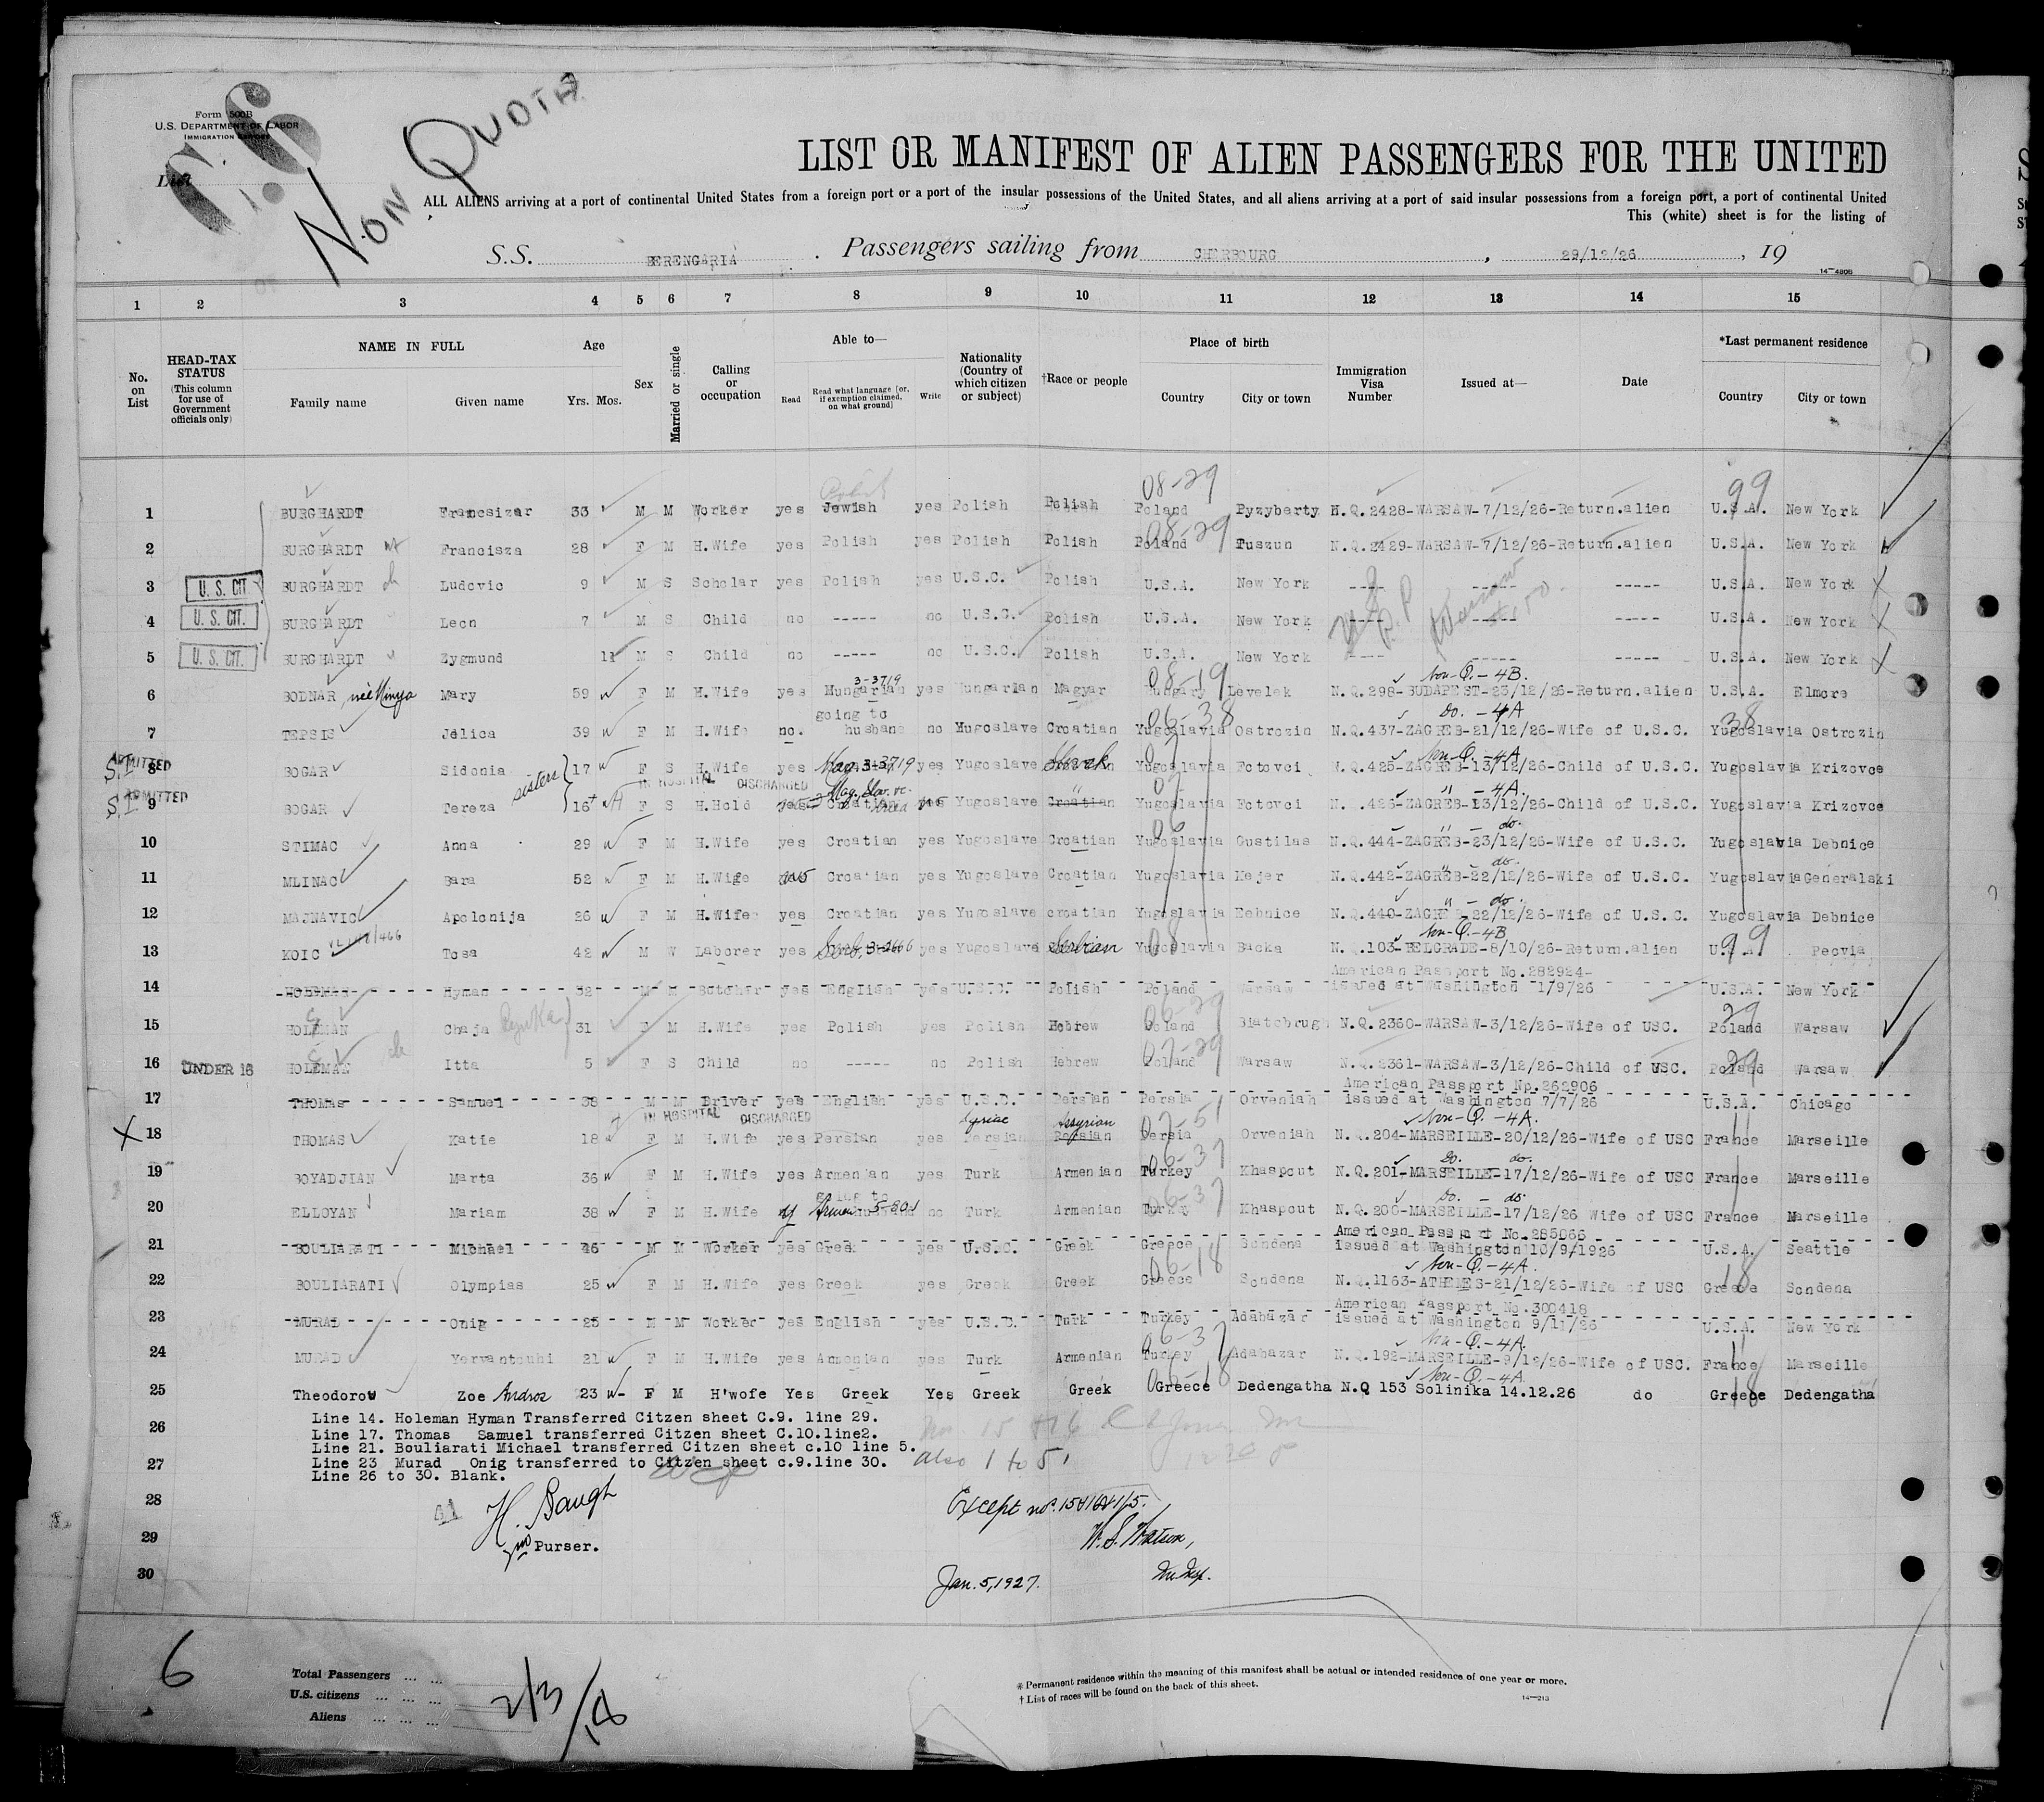 Form 500B
U.S. DEPARTMENT OF LABOR
IMMIGRATION SERVICE
List
NON QUOTA
LIST OR MANIFEST OF ALIEN PASSENGERS FOR THE UNITED
ALL ALIENS arriving at a port of continental United States from a foreign port or a port of the insular possessions of the United States, and all aliens arriving at a port of said insular possessions from a foreign port, a port of continental United
This (white) sheet is for the listing of
S.S. BERENGARIA . Passengers sailing from CHERBOURG , 29/12/26 , 19
14—480B
1 2 3 4 5 6 7 8 9 10 11 12 13 14 15
No. on List
HEAD-TAX STATUS (This column for use of Government officials only)
NAME IN FULL Family name Given name
Age Yrs. Mos.
Sex
Married or single
Calling or occupation
Able to— Read Read what language [or, if exemption claimed, on what ground] Write
Nationality (Country of which citizen or subject)
†Race or people
Place of birth Country City or town
Immigration Visa Number
Issued at—
Date
*Last permanent residence Country City or town
08-29 99
1 BURGHARDT Francsizer 33 M M Worker yes Jewish yes Polish Polish Poland Pyzyberty N.Q.2428-WARSAW-7/12/26-Return.alien U.S.A. New York
2 BURGHARDT Francisza 28 F M H.Wife yes Polish yes Polish Polish Poland 08-29 Tuszun N.Q.2429-WARSAW-7/12/26-Return.alien U.S.A. New York
3 U. S. CIT. BURGHARDT ch Ludovic 9 M S Scholar yes Polish yes U.S.C. Polish U.S.A. New York ---- ----- ----- U.S.A. New York
4 U. S. CIT. BURGHARDT Leon 7 M S Child no ----- no U.S.C. Polish U.S.A. New York ---- ----- ----- U.S.A. New York
5 U. S. CIT. BURGHARDT Zygmund 11 M S Child no ----- no U.S.C. Polish U.S.A. New York ---- ----- ----- U.S.A. New York
3-3719 08-19 Non-Q.-4B.
6 BODNAR, née Ninyo Mary 59 F M H.Wife yes Hungarian yes Hungarian Magyar Hungary Levelek N.Q.298-BUDAPEST-23/12/26-Return.alien U.S.A. Elmore
going to 06-38 Do. -4A 38
7 TEPSIS Jelica 39 F M H.Wife no. husband no Yugoslave Croatian Yugoslavia Ostrozin N.Q.437-ZAGREB-21/12/26-Wife of U.S.C. Yugoslavia Ostrozin
S.I. ADMITTED Non-Q.-4A
8 BOGAR Sidonia sisters 17 F S H.Wife yes Mag. 3-3719 yes Yugoslave Slovak Yugoslavia Fotovci N.Q.425-ZAGREB-13/12/26-Child of U.S.C. Yugoslavia Krizovce
S.I. ADMITTED IN HOSPITAL DISCHARGED " -4A.
9 BOGAR Tereza 16 F S H.Hold yes Croatian yes Yugoslave Croatian Yugoslavia Fotovci N. .426-ZAGREB-13/12/26-Child of U.S.C. Yugoslavia Krizovce
06 " - do.
10 STIMAC Anna 29 F M H.Wife yes Croatian yes Yugoslave Croatian Yugoslavia Gustilas N.Q.444-ZAGREB-23/12/26-Wife of U.S.C. Yugoslavia Debnice
" - do.
11 MLINAC Bara 52 F M H.Wige yes Croatian yes Yugoslave Croatian Yugoslavia Mejer N.Q.442-ZAGREB-22/12/26-Wife of U.S.C. Yugoslavia Generalski
" - do.
12 MAJNAVIC Apolonija 26 F M H.Wife yes Croatian yes Yugoslave croatian Yugoslavia Eebnice N.Q.440-ZAGREB-22/12/26-Wife of U.S.C. Yugoslavia Debnice
Non-Q.-4B
13 KOIC Tosa 42 M W Laborer yes Serb. 3-2666 yes Yugoslave Serbian Yugoslavia Backa N.Q.103-BELGRADE-8/10/26-Return.alien U.S.A. 99 Peovia
American Passport No.282924-
14 HOLEMAN Hyman 32 M M Butcher yes English yes U.S.C. Polish Poland Warsaw issued at Washington 1/9/26 U.S.A. New York
06-29 29
15 HOLEMAN Chaja 31 F M H.Wife yes Polish yes Polish Hebrew Poland Biatobrugh N.Q.2360-WARSAW-3/12/26-Wife of USC. Poland Warsaw
07-29
16 UNDER 16 HOLEMAN ch Itta 5 F S Child no ----- no Polish Hebrew Poland Warsaw N.Q.2361-WARSAW-3/12/26-Child of USC. Poland 29 Warsaw
American Passport No.262906
17 THOMAS Samuel 38 M M Driver yes English yes U.S.C. Persian Persia Orveniah issued at Washington 7/7/26 U.S.A. Chicago
IN HOSPITAL DISCHARGED Syriac Assyrian 07-51 Non-Q.-4A.
18 THOMAS Katie 18 F M H.Wife yes Persian yes Persian Persian Persia Orveniah N.Q.204-MARSEILLE-20/12/26-Wife of USC France Marseille
06-37 Do. do.
19 BOYADJIAN Marta 36 F M H.Wife yes Armenian yes Turk Armenian Turkey Khaspout N.Q.201-MARSEILLE-17/12/26-Wife of USC France Marseille
going to 06-37 Do. - do.
20 ELLOYAN Mariam 38 F M H.Wife Armen. 5-3201 no Turk Armenian Turkey Khaspout N.Q.200-MARSEILLE-17/12/26 Wife of USC France Marseille
American Passport No.285066
21 BOULIARATI Michael 46 M M Worker yes Greek yes U.S.C. Greek Greece Sondena issued at Washington 10/9/1926 U.S.A. Seattle
06-18 Non-Q.-4A. 18
22 BOULIARATI Olympias 25 F M H.Wife yes Greek yes Greek Greek Greece Sondena N.Q.1163-ATHENES-21/12/26-Wife of USC Greece Sondena
American Passport No.300418
23 MURAD Onig 25 M M Worker yes English yes U.S.C. Turk Turkey Adabazar issued at Washington 9/11/26 U.S.A. New York
06-37 Non-Q.-4A.
24 MURAD Yervantouhi 21 F M H.Wife yes Armenian yes Turk Armenian Turkey Adabazar N.Q.192-MARSEILLE-9/12/26-Wife of USC. France Marseille
06-18 Non-Q.-4A 18
25 Theodorow Zoe 23 F M H'wofe Yes Greek Yes Greek Greek Greece Dedengatha N.Q 153 Solinika 14.12.26 do Greece Dedengatha
Line 14. Holeman Hyman Transferred Citzen sheet C.9. line 29.
26
Line 17. Thomas Samuel transferred Citzen sheet C.10.line2.
Line 21. Bouliarati Michael transferred Citzen sheet c.10 line 5.
27 Line 23 Murad Onig transferred to Citzen sheet c.9.line 30. also 1 to 5,
Line 26 to 30. Blank.
28 H. Baugh Except nos. 15&16&1/5.
29 Purser. W.S. Watson,
30 Jan. 5, 1927. Im. Insp.
6
Total Passengers ... ...
U.S. citizens ... ... ...
Aliens ... ... ...
2/3/18
* Permanent residence within the meaning of this manifest shall be actual or intended residence of one year or more.
† List of races will be found on the back of this sheet.
14—213